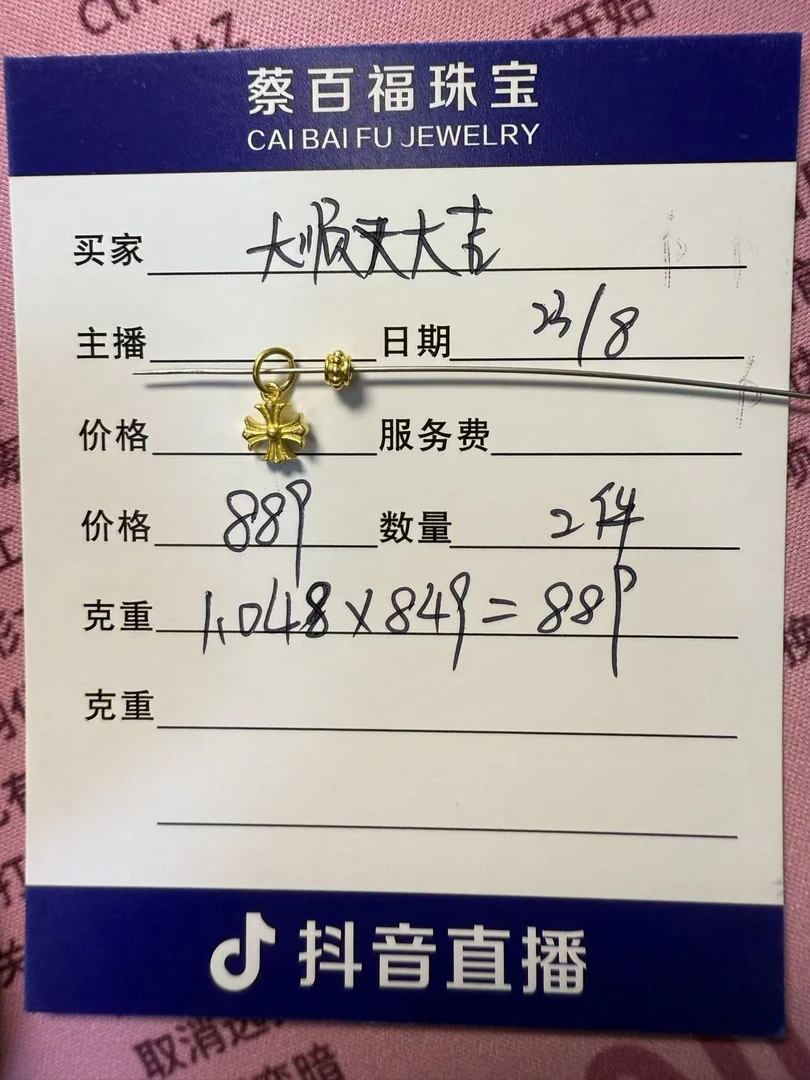 蔡百福珠宝
CAI BAI FU JEWELRY
买家 大顺大吉
主播 日期 23/8
价格 服务费
价格 889 数量 2件
克重 1.048×849=889
克重
抖音直播
取消
变暗
开始